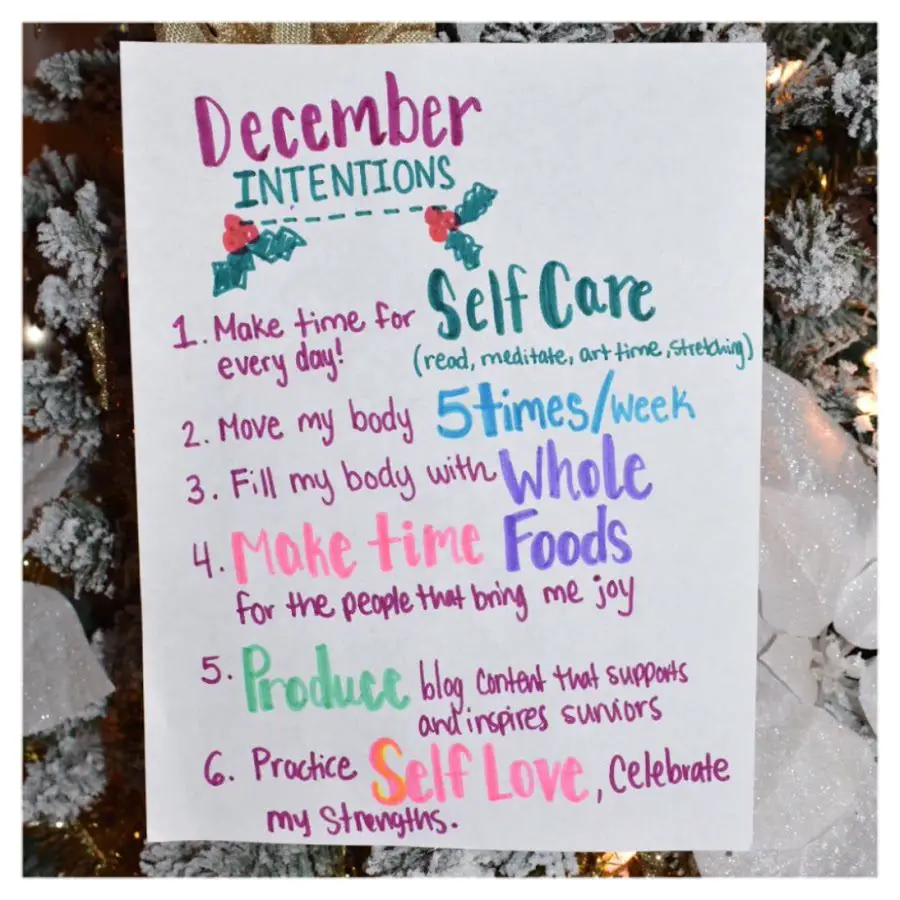 December
INTENTIONS
1. Make time for Self Care
every day! (read, meditate, art time, stretching)
2. Move my body 5times/week
3. Fill my body with Whole
Foods
4. Make time
for the people that bring me joy
5. Produce blog content that supports
and inspires surviors
6. Practice Self Love, Celebrate
my Strengths.